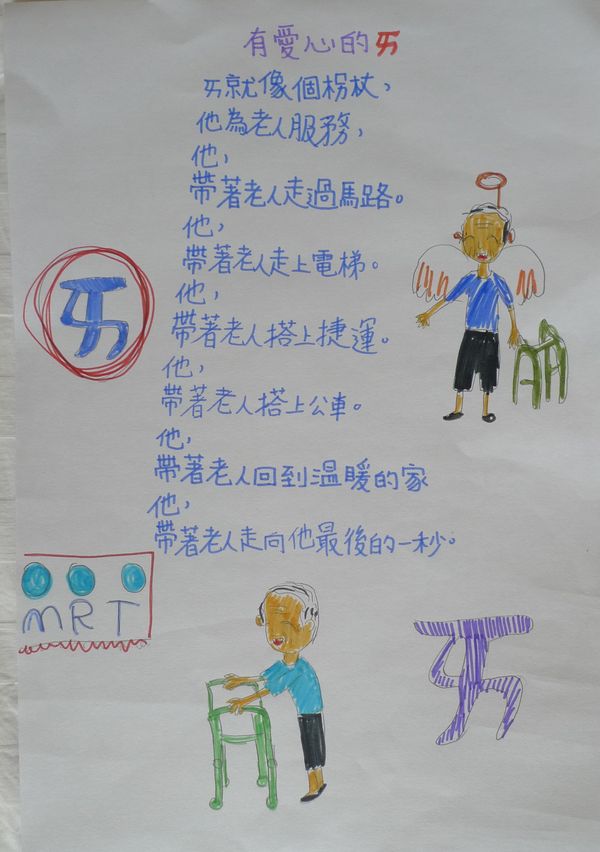 有愛心的ㄞ
ㄞ就像個柺杖，
他為老人服務，
他，
帶著老人走過馬路。
他，
帶著老人走上電梯。
他，
帶著老人搭上捷運。
他，
帶著老人搭上公車。
他，
帶著老人回到溫暖的家
他，
帶著老人走向他最後的一秒。
ㄞ
MRT
ㄞ